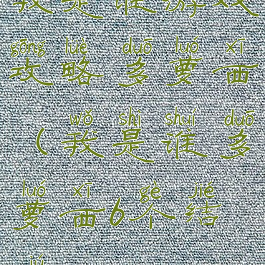 我是谁游戏
gōng lüè duō luó xī
攻略 多萝西
wǒ shì shuí duō
（我是谁多
luó xī gè jié
萝西6个结